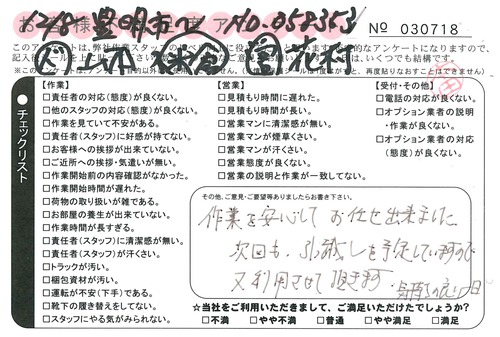 12/18 豊明市へ NO.058353
№ 030718
このアンケートは、弊社作業スタッフのレベル向上に役
記入後
チェックリスト
【作業】
□責任者の対応(態度)が良くない。
□他のスタッフの対応(態度)が良くない。
□作業を見ていて不安がある。
□責任者(スタッフ)に好感が持てない。
□お客様への挨拶が出来ていない。
□ご近所への挨拶・気遣いが無い。
□作業開始前の内容確認がなかった。
□作業開始時間が遅れた。
□荷物の取り扱いが雑である。
□お部屋の養生が出来ていない。
□作業時間が長すぎる。
□責任者(スタッフ)に清潔感が無い。
□責任者(スタッフ)が汗くさい。
□トラックが汚い。
□梱包資材が汚い。
□運転が不安(下手)である。
□靴下の履き替えをしてない。
□スタッフにやる気がみられない。
【営業】
□見積もり時間に遅れた。
□見積もり時間が長い。
□営業マンに清潔感が無い。
□営業マンが煙草くさい。
□営業マンが汗くさい。
□営業態度が良くない。
□営業の説明と作業が一致してない。
【受付・その他】
□電話の対応が良くない。
□オプション業者の説明
・作業が良くない。
□オプション業者の対応
(態度)が良くない。
その他、ご意見・ご要望等ありましたらお書き下さい。
作業を安心して お任せ出来ました
次回も、引越しを予定していますので
又利用させて頂きます
☆当社をご利用いただきまして、ご満足いただけたでしょうか?
□不満 □やや不満 □普通 □やや満足 □満足